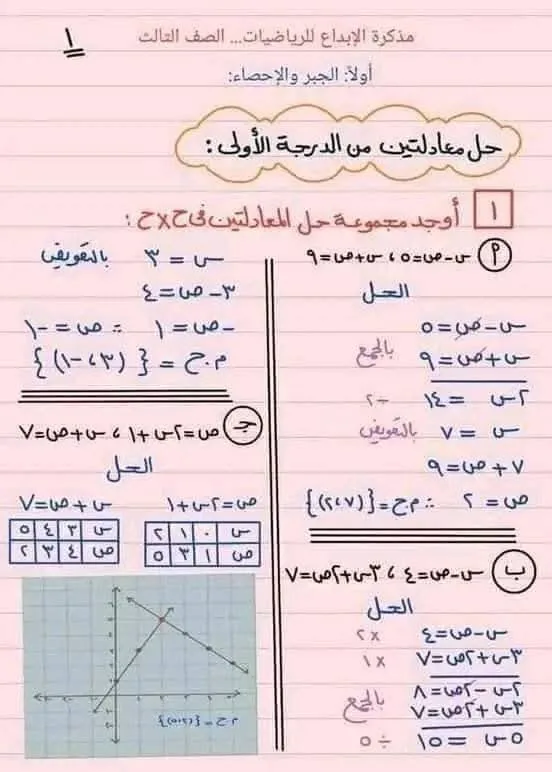 مذكرة الإبداع للرياضيات... الصف الثالث
١
أولاً: الجبر والإحصاء:
حل معادلتين من الدرجة الأولى :
١ أوجد مجموعة حل المعادلتين فى ح×ح :
أ س-ص=٥ ، س+ص=٩
الحل
س-ص=٥
س+ص=٩ بالجمع
٢س = ١٤ ÷٢
س = ٧ بالتعويض
٧+ص=٩
ص=٢ ∴ م.ح={(٧،٢)}
ب س-ص=٤ ، ٣س+٢ص=٧
الحل
س-ص=٤ ×٢
٣س+٢ص=٧ ×١
٢س-٢ص=٨
٣س+٢ص=٧ بالجمع
٥س = ١٥ ÷٥
س = ٣ بالتعويض
٣-ص=٤
-ص=١ ∴ ص=-١
م.ح = {(٣،-١)}
ج ص=٢س+١ ، س+ص=٧
الحل
ص=٢س+١
س ٠ ١ ٢
ص ١ ٣ ٥
س+ص=٧
س ٣ ٤ ٥
ص ٤ ٣ ٢
م.ح={(٢،٥)}